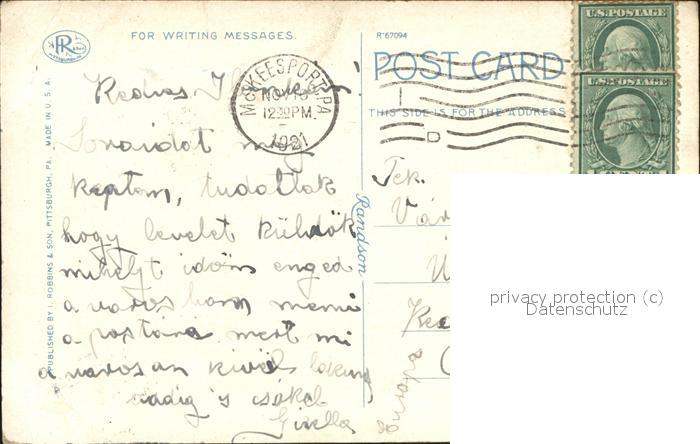 FOR WRITING MESSAGES.
R-67094
POST CARD
THIS SIDE IS FOR THE ADDRESS
U.S. POSTAGE
U.S. POSTAGE
McKEESPORT, PA
NOV
12 30 PM.
1921
PR
PITTSBURGH, PA.
PUBLISHED BY I. ROBBINS & SON, PITTSBURGH, PA. MADE IN U.S.A.
Randson
Kedves
Soraidat meg
kaptam, tudatlak
hogy levelet küldök
mihelyt idöm enged
a városban menni
a postara mert mi
a varosan kivül lakunk
addig is csókol
Gizella
Tek.
privacy protection (c)
Datenschutz